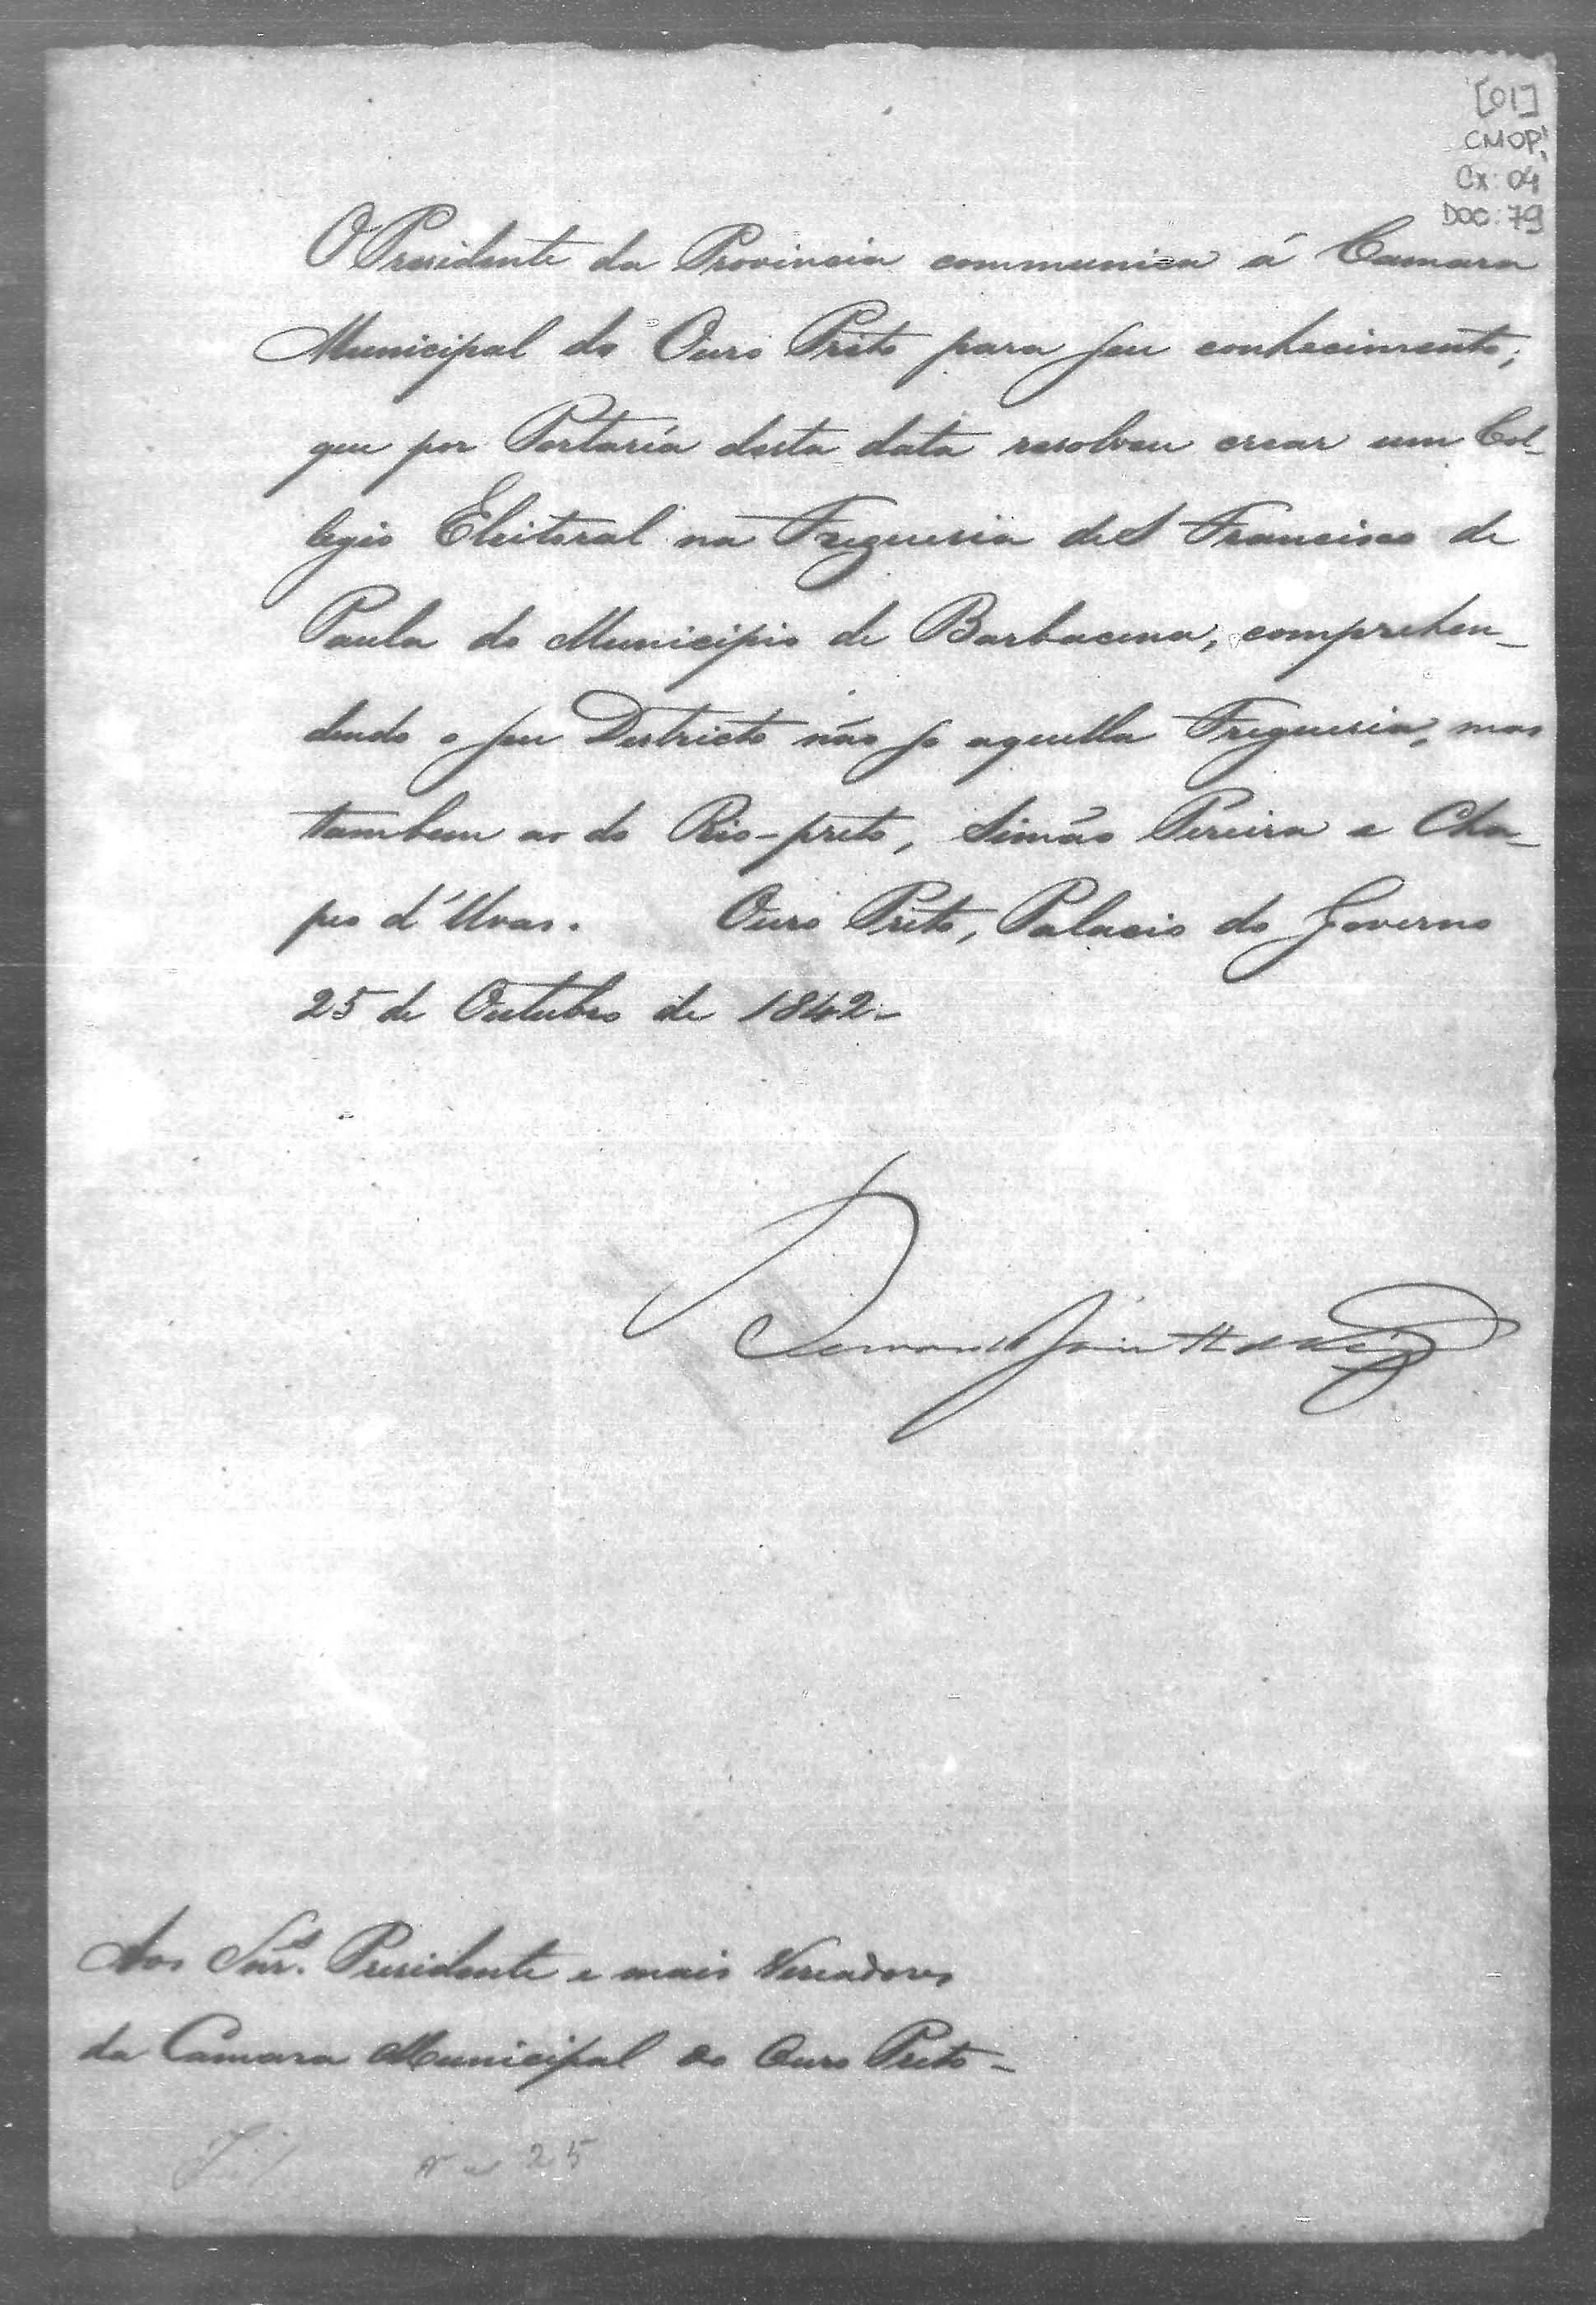 [01]
CMOP
Cx: 04
DOC: 79
O Presidente da Provincia communica á Camara
Municipal do Ouro Preto para seu conhecimento,
que por Portaría desta data resolveu crear um Col-
legio Eleitoral na Freguesia de S Francisco de
Paula do Municipio de Barbacena, comprehen-
dendo o seu Destricto não so aquella Freguesia, mas
tambem as do Rio-preto, Simão Pereira e Cha-
peo d'Uvas. Ouro Preto, Palacio do Governo
25 de Outubro de 1842-
Aos Snr.s Presidente e mais Vereadores
da Camara Municipal do Ouro Preto-
25